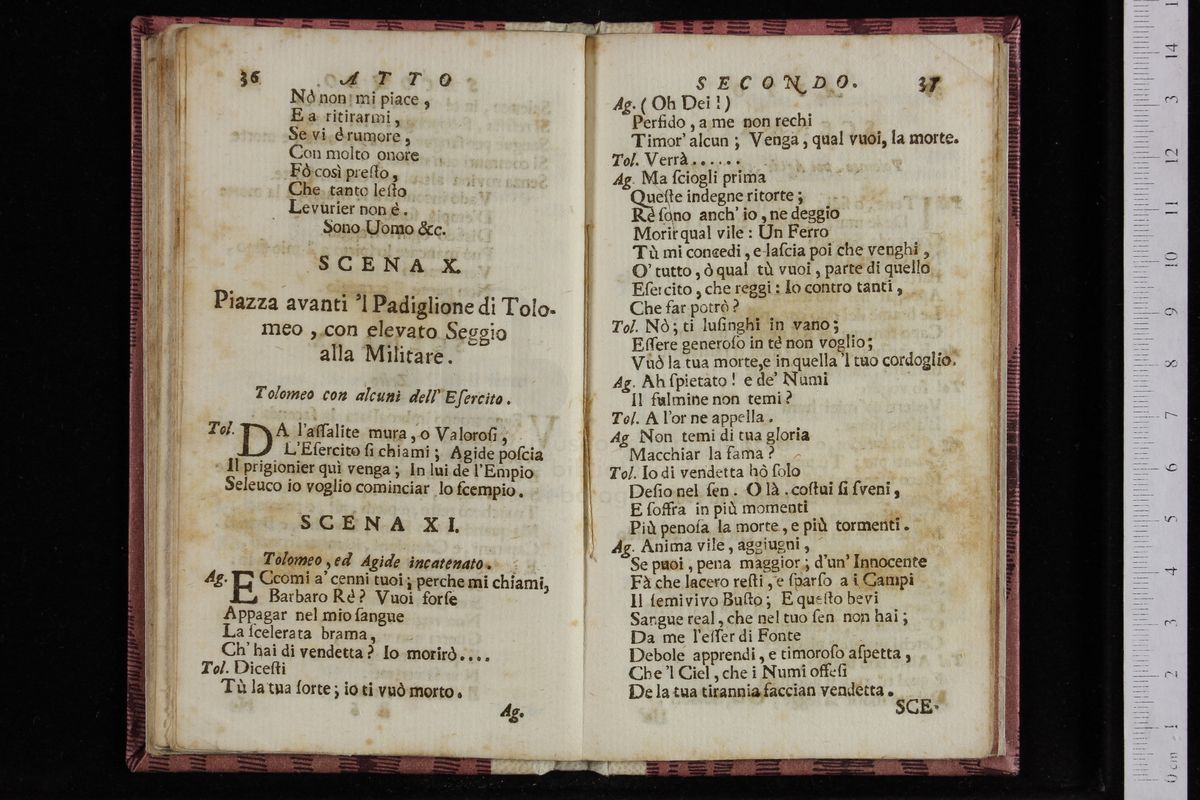 36 ATTO
Nò non mi piace,
E a ritirarmi,
Se vi è rumore,
Con molto onore
Fò così preſto,
Che tanto leſto
Levurier non è.
Sono Uomo &c.
SCENA X.
Piazza avanti 'l Padiglione di Tolo-
meo, con elevato Seggio
alla Militare.
Tolomeo con alcuni dell' Eſercito.
Tol. DA l'aſſalite mura, o Valoroſi,
L'Eſercito ſi chiami; Agide poſcia
Il prigionier quì venga; In lui de l'Empio
Seleuco io voglio cominciar lo ſcempio.
SCENA XI.
Tolomeo, ed Agide incatenato.
Ag. ECcomi a' cenni tuoi; perche mi chiami,
Barbaro Rè? Vuoi forſe
Appagar nel mio ſangue
La ſcelerata brama,
Ch' hai di vendetta? Io morirò....
Tol. Diceſti
Tù la tua ſorte; io ti vuò morto.
Ag.
SECONDO. 37
Ag. (Oh Dei!)
Perfido, a me non rechi
Timor' alcun; Venga, qual vuoi, la morte.
Tol. Verrà......
Ag. Ma ſciogli prima
Queſte indegne ritorte;
Rè ſono anch' io, ne deggio
Morir qual vile: Un Ferro
Tù mi concedi, e laſcia poi che venghi,
O' tutto, ò qual tù vuoi, parte di quello
Eſercito, che reggi: Io contro tanti,
Che far potrò?
Tol. Nò; ti luſinghi in vano;
Eſſere generoſo in tè non voglio;
Vuò la tua morte,e in quella 'l tuo cordoglio.
Ag. Ah ſpietato! e de' Numi
Il fulmine non temi?
Tol. A l'or ne appella.
Ag Non temi di tua gloria
Macchiar la fama?
Tol. Io di vendetta hò ſolo
Deſio nel ſen. O là. coſtui ſi ſveni,
E ſoffra in più momenti
Più penoſa la morte, e più tormenti.
Ag. Anima vile, aggiugni,
Se puoi, pena maggior; d'un' Innocente
Fà che lacero reſti, e ſparſo a i Campi
Il ſemivivo Buſto; E queſto bevi
Sangue real, che nel tuo ſen non hai;
Da me l'eſſer di Fonte
Debole apprendi, e timoroſo aſpetta,
Che 'l Ciel, che i Numi offeſi
De la tua tirannia faccian vendetta.
SCE-
0 cm 1 2 3 4 5 6 7 8 9 10 11 12 3 14